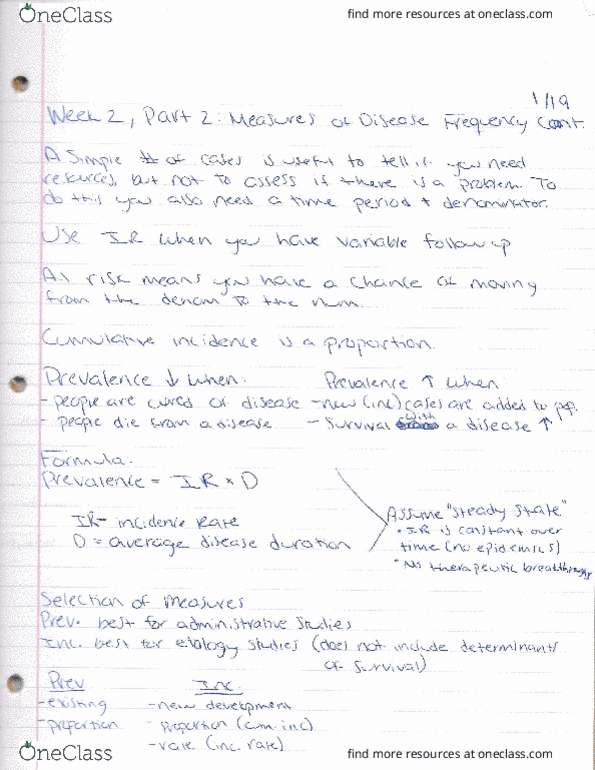 OneClass
find more resources at oneclass.com
1/19
Week 2, Part 2: Measures of Disease Frequency Cont.
A Simple # of cases is useful to tell if you need
resources, but not to assess if there is a problem. To
do this you also need a time period + denominator.
Use IR when you have variable follow up
At risk means you have a chance of moving
from the denom to the num.
Cumulative incidence is a proportion.
Prevalence ↓ when: Prevalence ↑ when:
- people are cured of disease - new (inc) cases are added to pop.
- people die from a disease - Survival with a disease ↑
Formula:
Prevalence = IR x D
Assume "Steady State"
IR = incidence rate • IR is constant over
D = average disease duration time (no epidemics)
• No therapeutic breakthroughs
Selection of measures
Prev. best for administrative studies
Inc. best for etiology studies (does not include determinants
of survival)
Prev Inc.
- existing - new development
- proportion - Proportion (cum. inc)
- rate (inc. rate)
OneClass
find more resources at oneclass.com